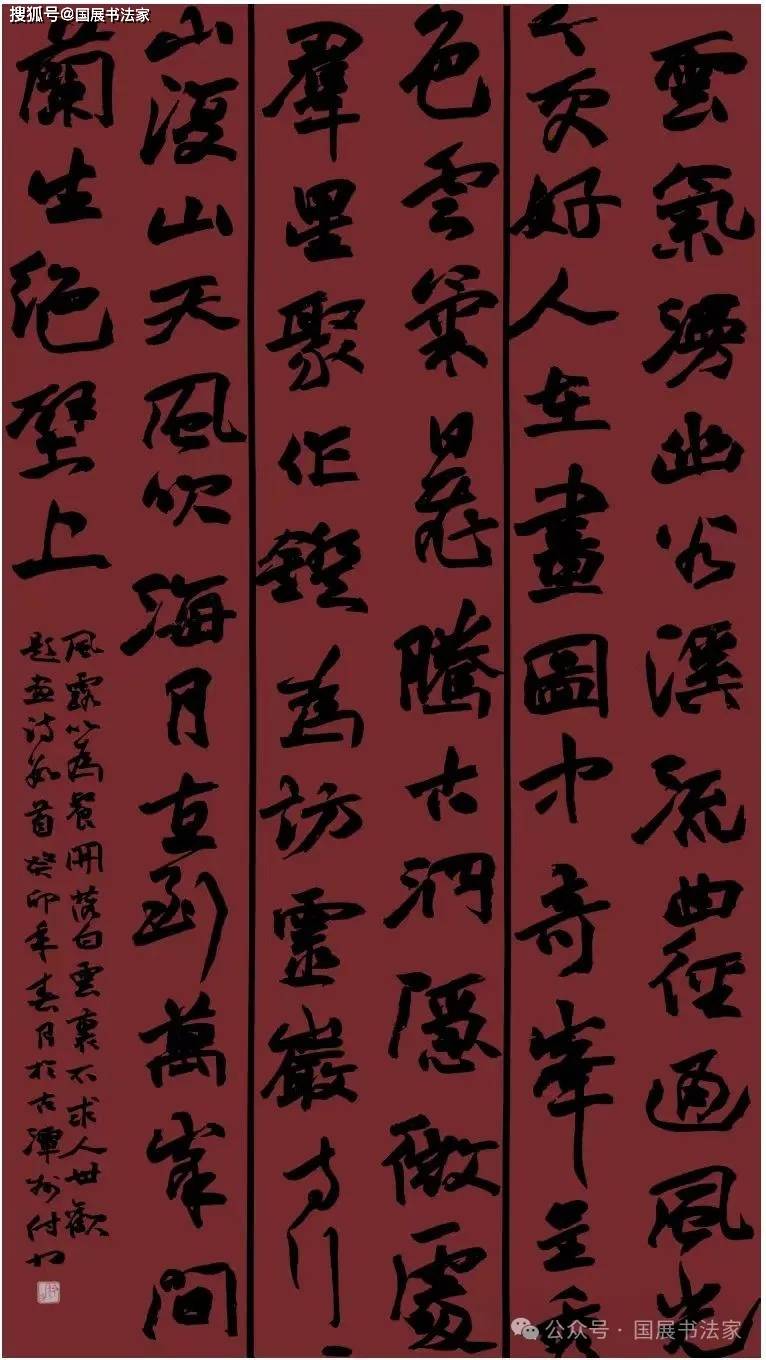 搜狐号@国展书法家
雲氣湧幽谷溪流曲徑通風光
今更好人在畫圖中奇峯呈秀
色雲氣日蒸騰古洞隱微處
羣星聚作鐙為訪靈巖寺行一
山復山天風吹海月直到萬峯間
蘭生絕壁上
風露以為餐開落白雲裏不求人世歡
題畫詩數首癸卯年春月於古潭州付
公众号·国展书法家